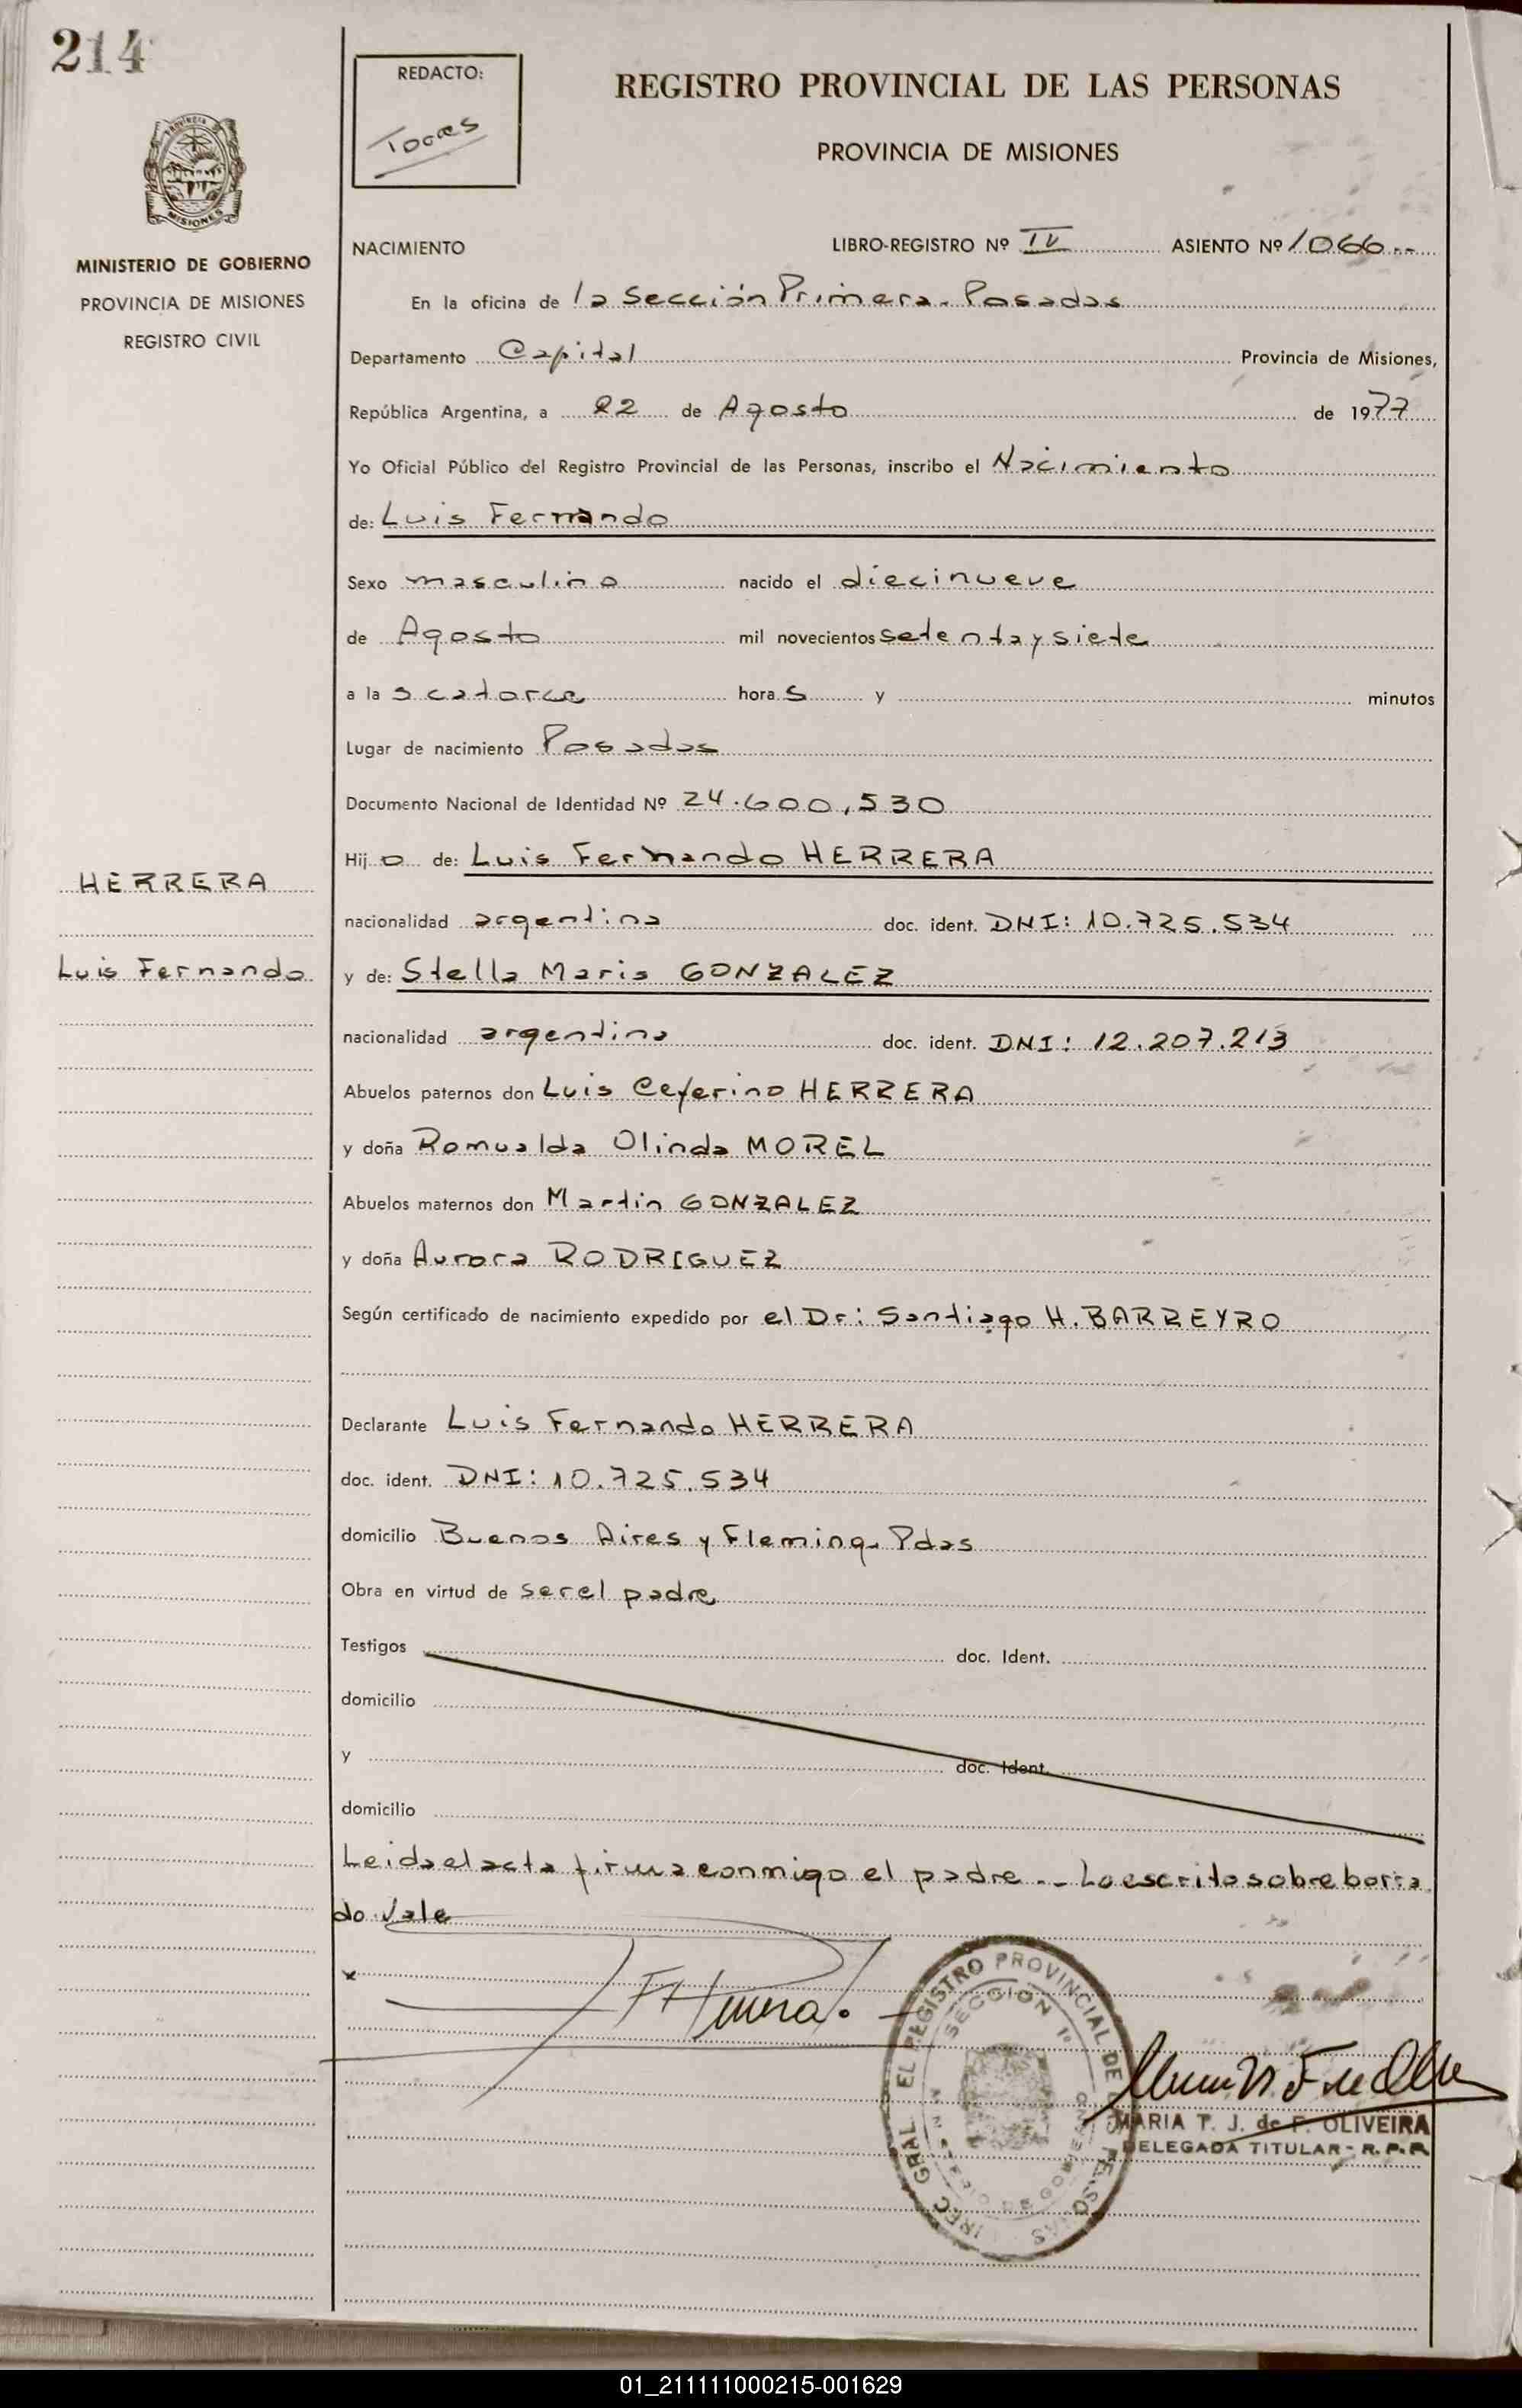 214
REDACTO:
Torres
REGISTRO PROVINCIAL DE LAS PERSONAS
PROVINCIA DE MISIONES
PROVINCIA
MISIONES
MINISTERIO DE GOBIERNO
PROVINCIA DE MISIONES
REGISTRO CIVIL
NACIMIENTO LIBRO-REGISTRO Nº IV ASIENTO Nº 1066--
En la oficina de la Sección Primera. Posadas
Departamento Capital Provincia de Misiones,
República Argentina, a 22 de Agosto de 1977
Yo Oficial Público del Registro Provincial de las Personas, inscribo el Nacimiento
de: Luis Fernando
Sexo masculino nacido el diecinueve
de Agosto mil novecientos setenta y siete
a las catorce horas y minutos
Lugar de nacimiento Posadas
Documento Nacional de Identidad Nº 24.600,530
Hijo de: Luis Fernando HERRERA
HERRERA
nacionalidad argentina doc. ident. DNI: 10.725.534
Luis Fernando
y de: Stella Maris GONZALEZ
nacionalidad argentina doc. ident. DNI: 12.207.213
Abuelos paternos don Luis Ceferino HERRERA
y doña Romualda Olinda MOREL
Abuelos maternos don Martin GONZALEZ
y doña Aurora RODRIGUEZ
Según certificado de nacimiento expedido por el Dr: Santiago H. BARREYRO
Declarante Luis Fernando HERRERA
doc. ident. DNI: 10.725.534
domicilio Buenos Aires y Fleming. Pdas
Obra en virtud de ser el padre
Testigos doc. Ident.
domicilio
y doc. Ident.
domicilio
Leida el acta firma conmigo el padre.-- Lo escrito sobre borra
do vale
x
FHerrera.
DIREC. GRAL EL REGISTRO PROVINCIAL DE LAS PERSONAS
SECCION 1ª
MINISTERIO DE GOBIERNO
MARIA T. J. de F. OLIVEIRA
DELEGADA TITULAR - R.P.P.
01_211111000215-001629